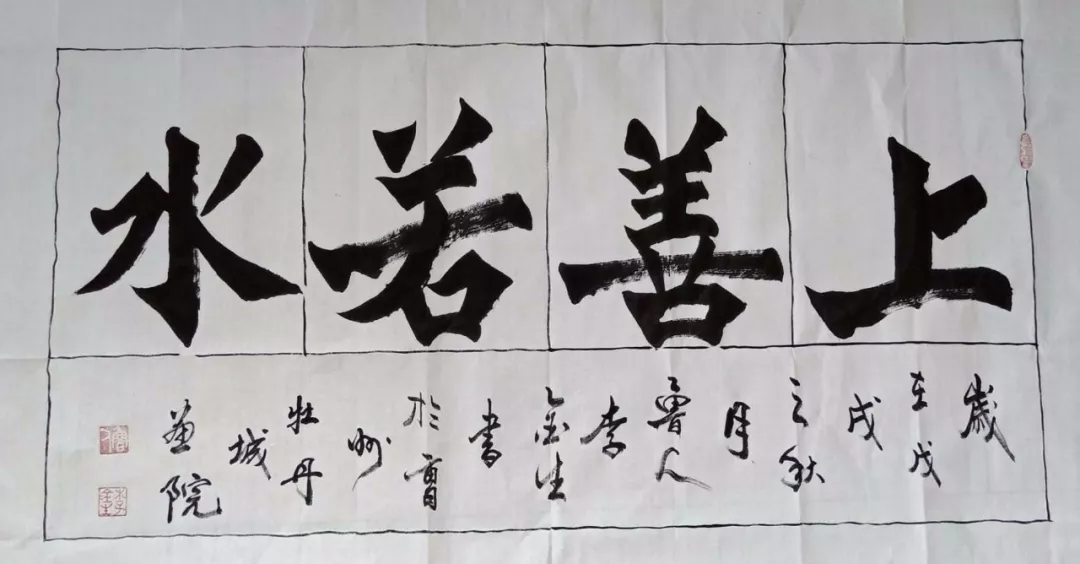 上善若水
歲在戊戌之秋月魯人李金生書於曹州牡丹城院